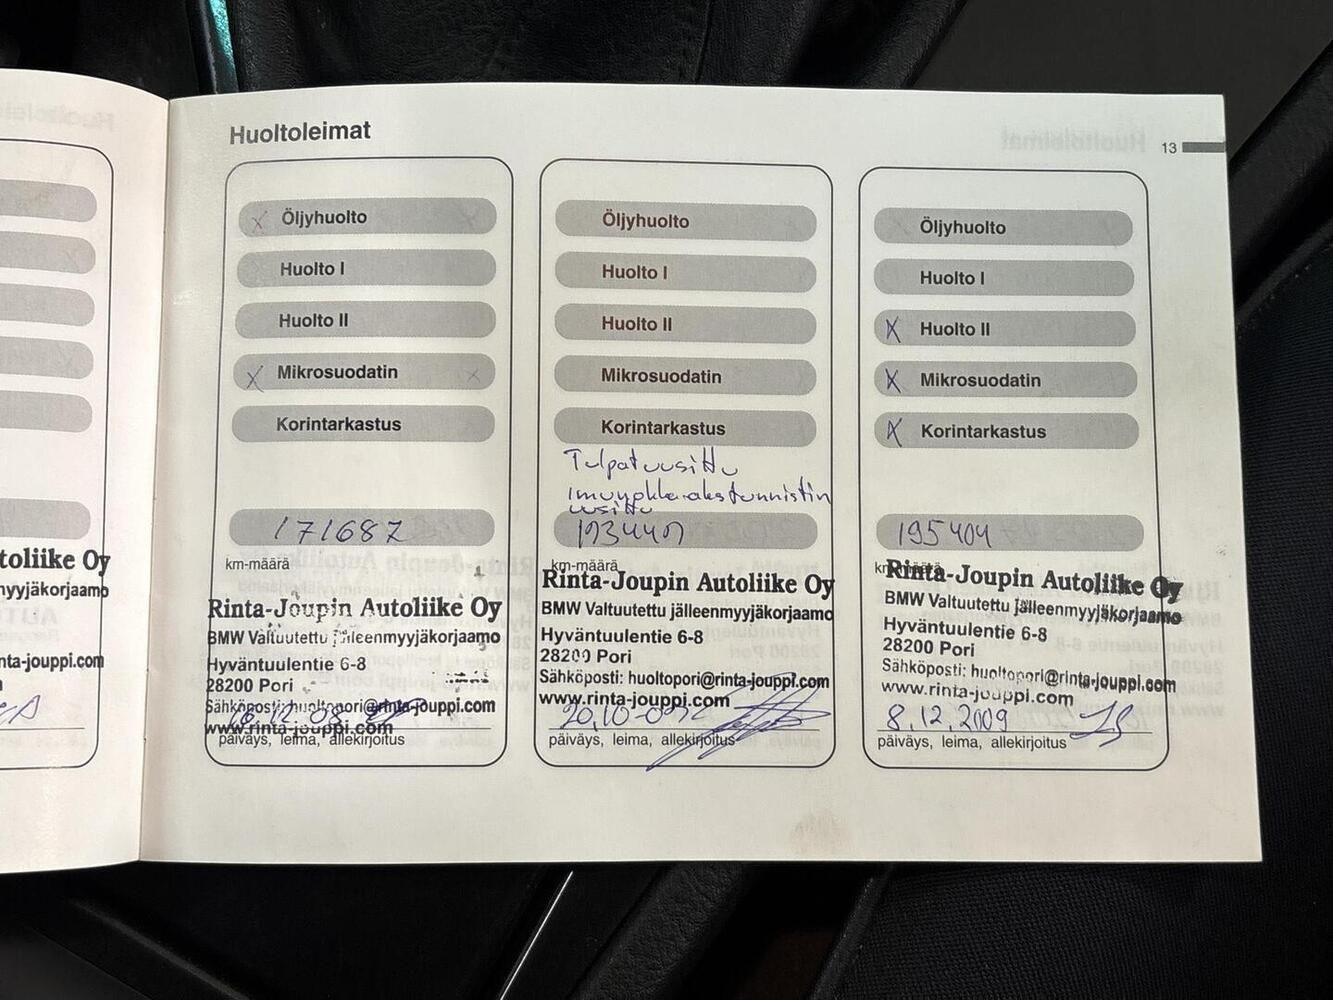 Huoltoleimat
13
toliike Oy
nyyjäkorjaamo
nta-jouppi.com
X Öljyhuolto
Huolto I
Huolto II
X Mikrosuodatin
Korintarkastus
171687
km-määrä
Rinta-Joupin Autoliike Oy
BMW Valtuutettu jälleenmyyjäkorjaamo
Hyväntuulentie 6-8
28200 Pori
Sähköposti: huoltopori@rinta-jouppi.com
www.rinta-jouppi.com
päiväys, leima, allekirjoitus
Öljyhuolto
Huolto I
Huolto II
Mikrosuodatin
Korintarkastus
Tulpat uusittu
uusittu
km-määrä
Rinta-Joupin Autoliike Oy
BMW Valtuutettu jälleenmyyjäkorjaamo
Hyväntuulentie 6-8
28200 Pori
Sähköposti: huoltopori@rinta-jouppi.com
www.rinta-jouppi.com
päiväys, leima, allekirjoitus
Öljyhuolto
Huolto I
X Huolto II
X Mikrosuodatin
X Korintarkastus
195404
km-määrä
Rinta-Joupin Autoliike Oy
BMW Valtuutettu jälleenmyyjäkorjaamo
Hyväntuulentie 6-8
28200 Pori
Sähköposti: huoltopori@rinta-jouppi.com
www.rinta-jouppi.com
8.12.2009
päiväys, leima, allekirjoitus